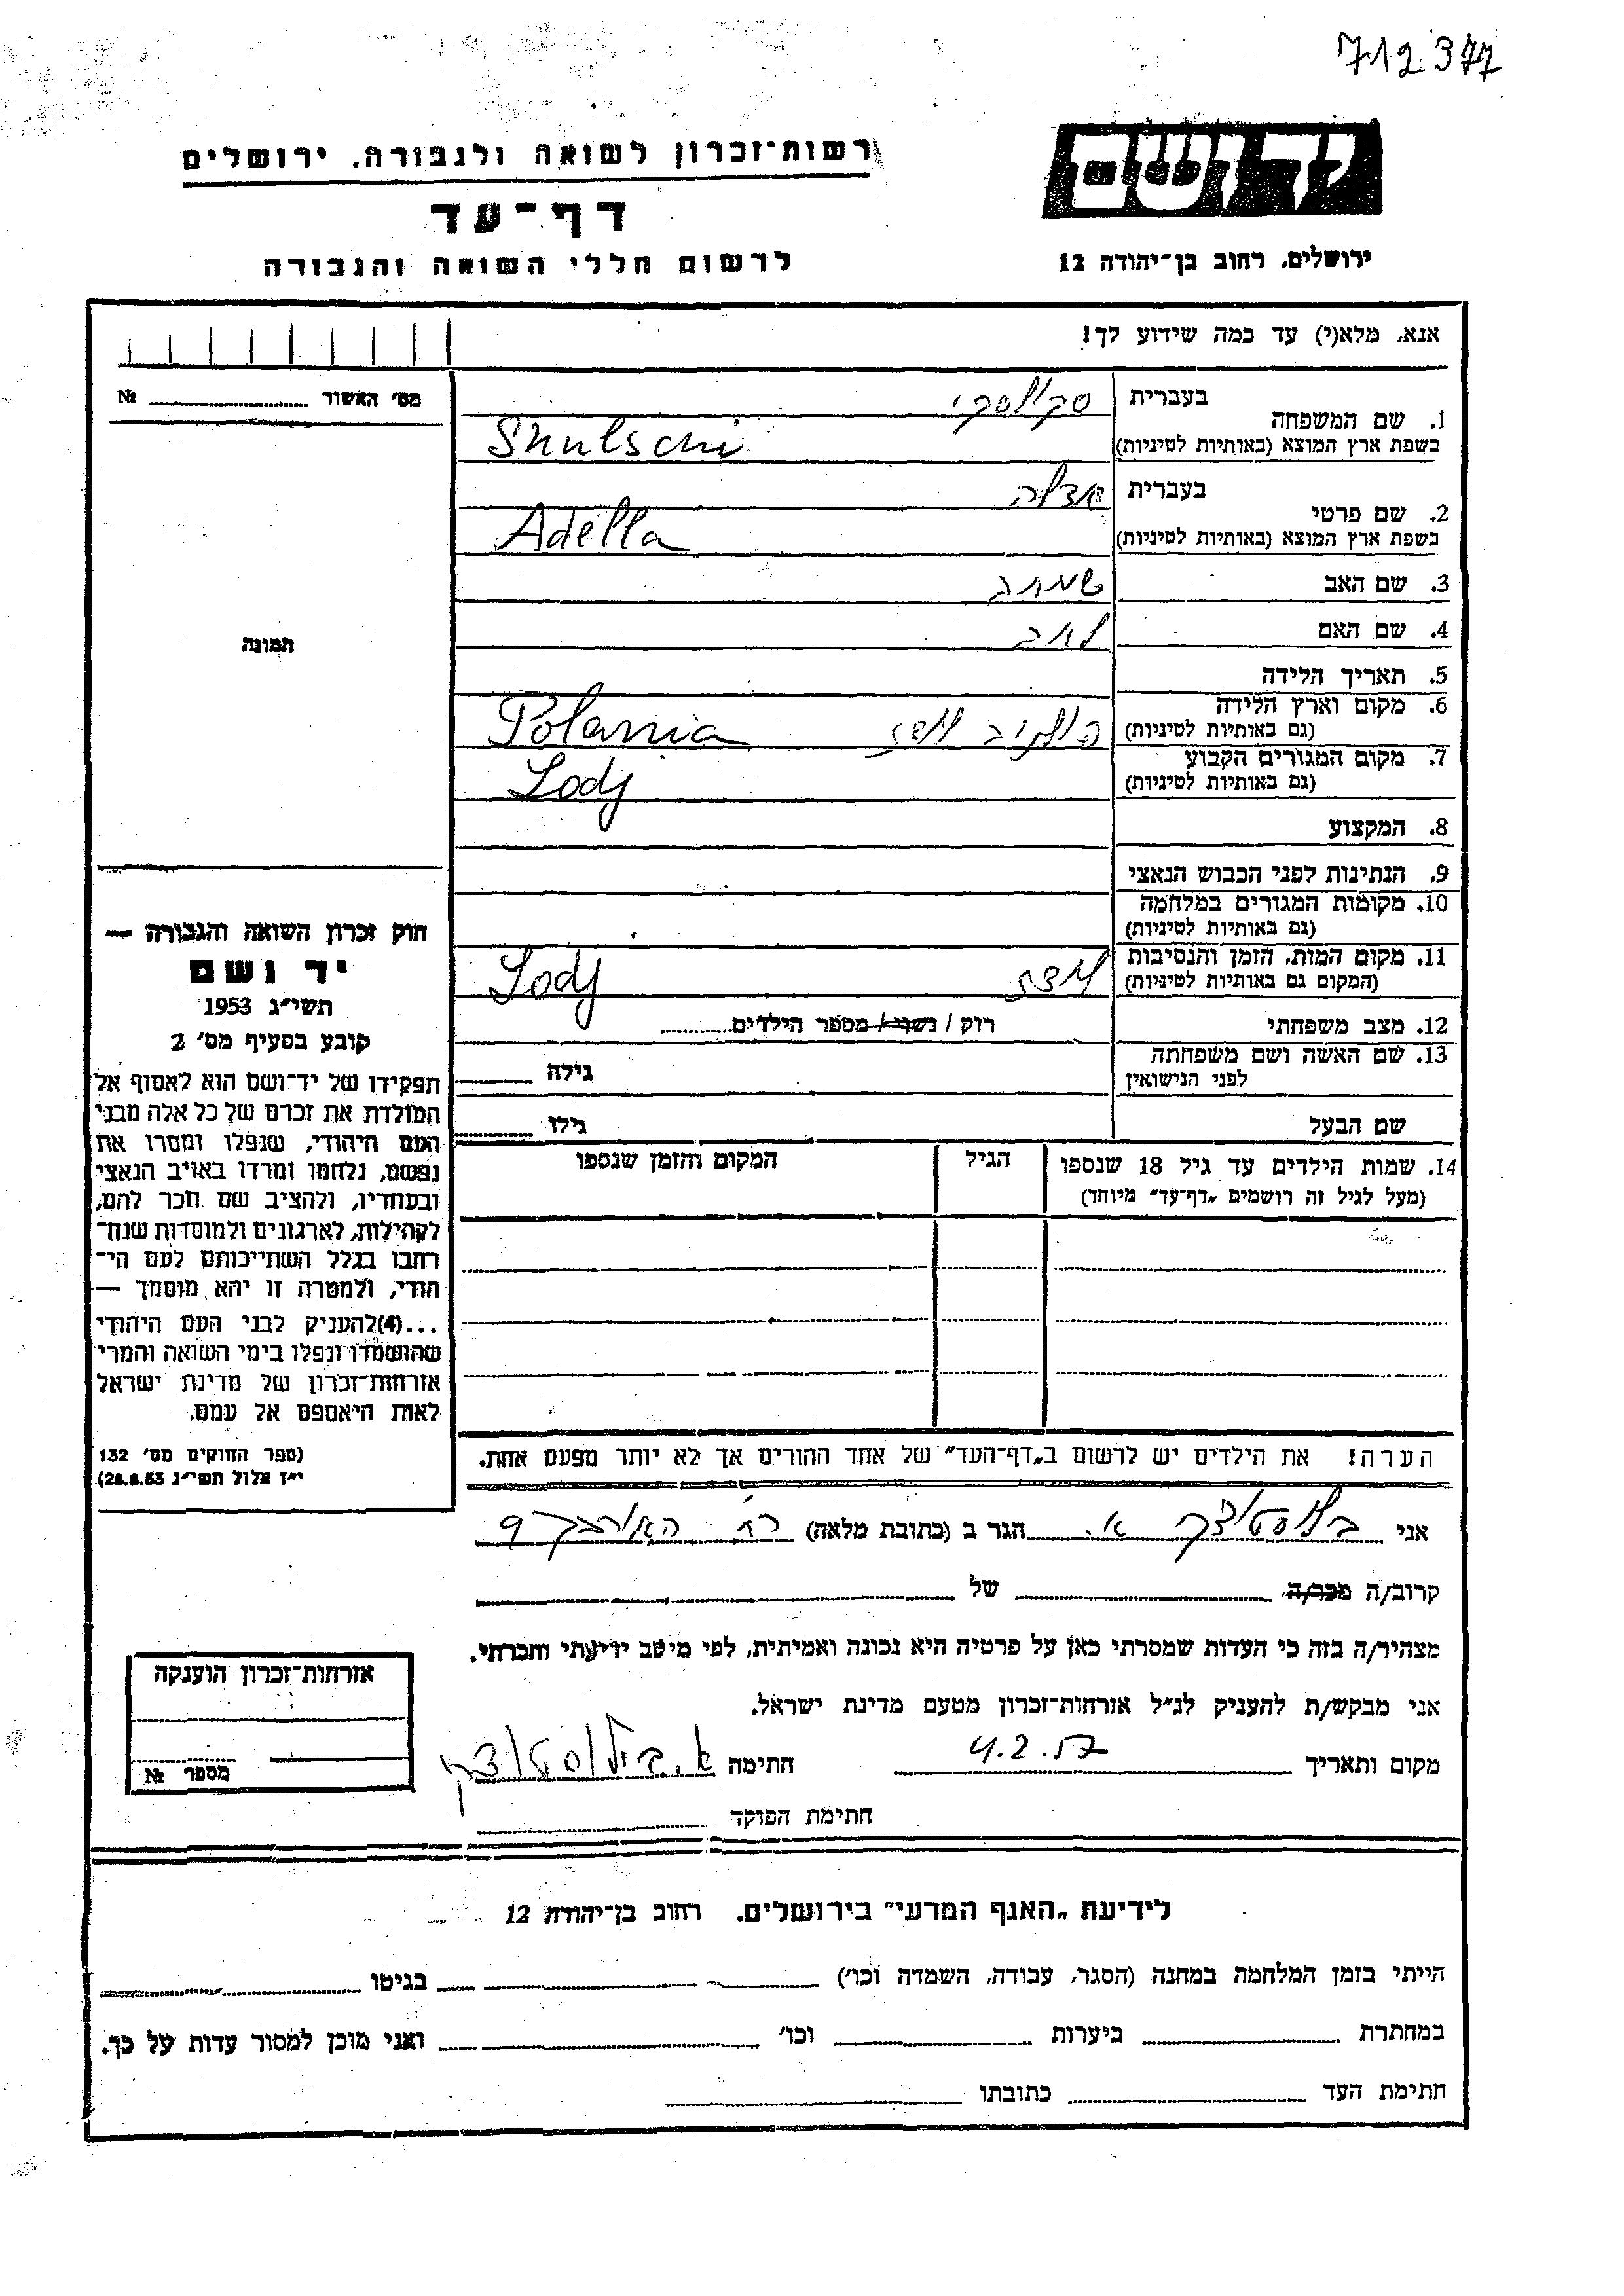 712377
יד ושם
רשות־זכרון לשואה ולגבורה, ירושלים
דף־עד
לרשום חללי השואה והגבורה
ירושלים, רחוב בן־יהודה 12
אנא, מלא(י) עד כמה שידוע לך!
מס׳ האשור № 
1. שם המשפחה
בעברית
בשפת ארץ המוצא (באותיות לטיניות)
2. שם פרטי
בעברית אדלה
בשפת ארץ המוצא (באותיות לטיניות) Adella
3. שם האב
4. שם האם
5. תאריך הלידה
6. מקום וארץ הלידה
(גם באותיות לטיניות) Polania
7. מקום המגורים הקבוע
(גם באותיות לטיניות) Lodj
8. המקצוע
9. הנתינות לפני הכבוש הנאצי
10. מקומות המגורים במלחמה
(גם באותיות לטיניות)
11. מקום המות, הזמן והנסיבות
(המקום גם באותיות לטיניות) Lodj
12. מצב משפחתי רווק / נשוי / מספר הילדים
13. שם האשה ושם משפחתה
לפני הנישואין
גילה
שם הבעל
גילו
14. שמות הילדים עד גיל 18 שנספו
(מעל לגיל זה רושמים „דף־עד" מיוחד)
הגיל
המקום והזמן שנספו
תמונה
חוק זכרון השואה והגבורה —
יד ושם
תשי״ג 1953
קובע בסעיף מס׳ 2
תפקידו של יד־ושם הוא לאסוף אל
המולדת את זכרם של כל אלה מבני
העם היהודי, שנפלו ומסרו את
נפשם, נלחמו ומרדו באויב הנאצי
ובעוזריו, ולהציב שם וזכר להם,
לקהילות, לארגונים ולמוסדות שנח־
רבו בגלל השתייכותם לעם הי־
הודי, ולמטרה זו יהא מוסמך —
...(4)להעניק לבני העם היהודי
שהושמדו ונפלו בימי השואה והמרי
אזרחות־זכרון של מדינת ישראל
לאות היאספם אל עמם.
(ספר החוקים מס׳ 132
י״ז אלול תשי״ג 28.8.53)
הערה! את הילדים יש לרשום ב„דף־העד" של אחד ההורים אך לא יותר מפעם אחת.
אני הגר ב (כתובת מלאה)
קרוב/ה מכר/ה של
מצהיר/ה בזה כי העדות שמסרתי כאן על פרטיה היא נכונה ואמיתית, לפי מיטב ידיעתי והכרתי.
אני מבקש/ת להעניק לנ״ל אזרחות־זכרון מטעם מדינת ישראל.
מקום ותאריך 4.2.57 חתימה
חתימת הפוקד
אזרחות־זכרון הוענקה
מספר №
לידיעת „האגף המדעי" בירושלים, רחוב בן־יהודה 12
הייתי בזמן המלחמה במחנה (הסגר, עבודה, השמדה וכו׳) בגיטו
במחתרת ביערות וכו׳ ואני מוכן למסור עדות על כך.
חתימת העד כתובתו